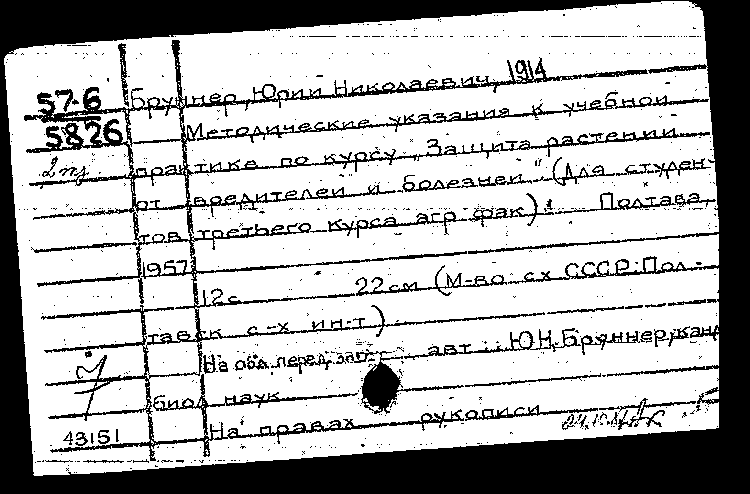 57-6 Бруннер, Юрии Николаевич, 1914
5826 Методические указания к учебнои
2 практике по курсу „Защита растении
от вредителеи и болезнеи". (Для студен-
тов третьего курса агр фак). Полтава,
1957
12с 22см (М-во с х СССР. Пол-
тавск с-х ин-т)
На обл. перед. загл.: авт : Ю.Н. Бруннер, канд
биол наук
43151 На правах рукописи